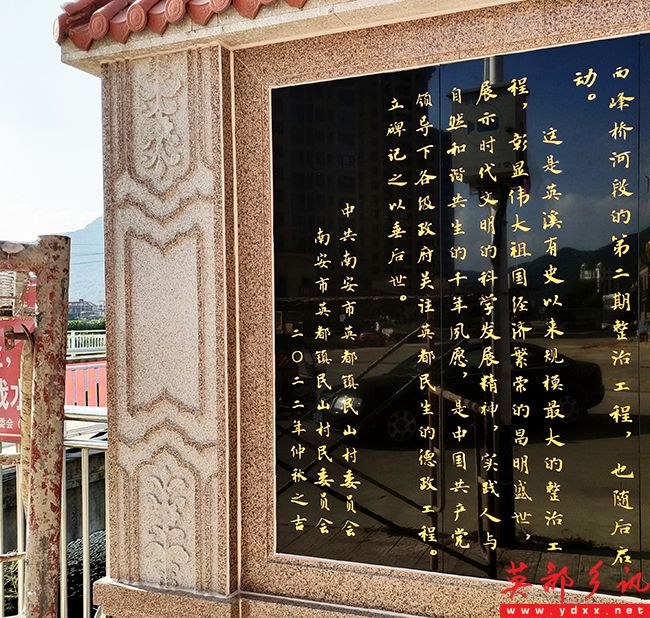 西峰桥河段的第二期整治工程，也随后启
动。
这是英溪有史以来规模最大的整治工
程，彰显伟大祖国经济繁荣的昌明盛世，
展示时代文明的科学发展精神，实践人与
自然和谐共生的千年夙愿，是中国共产党
领导下各级政府关注英都民生的德政工程。
立碑记之以垂后世。
中共南安市英都镇民山村委员会
南安市英都镇民山村民委员会
二〇二二年仲秋之吉
英都乡讯
www.ydxx.net